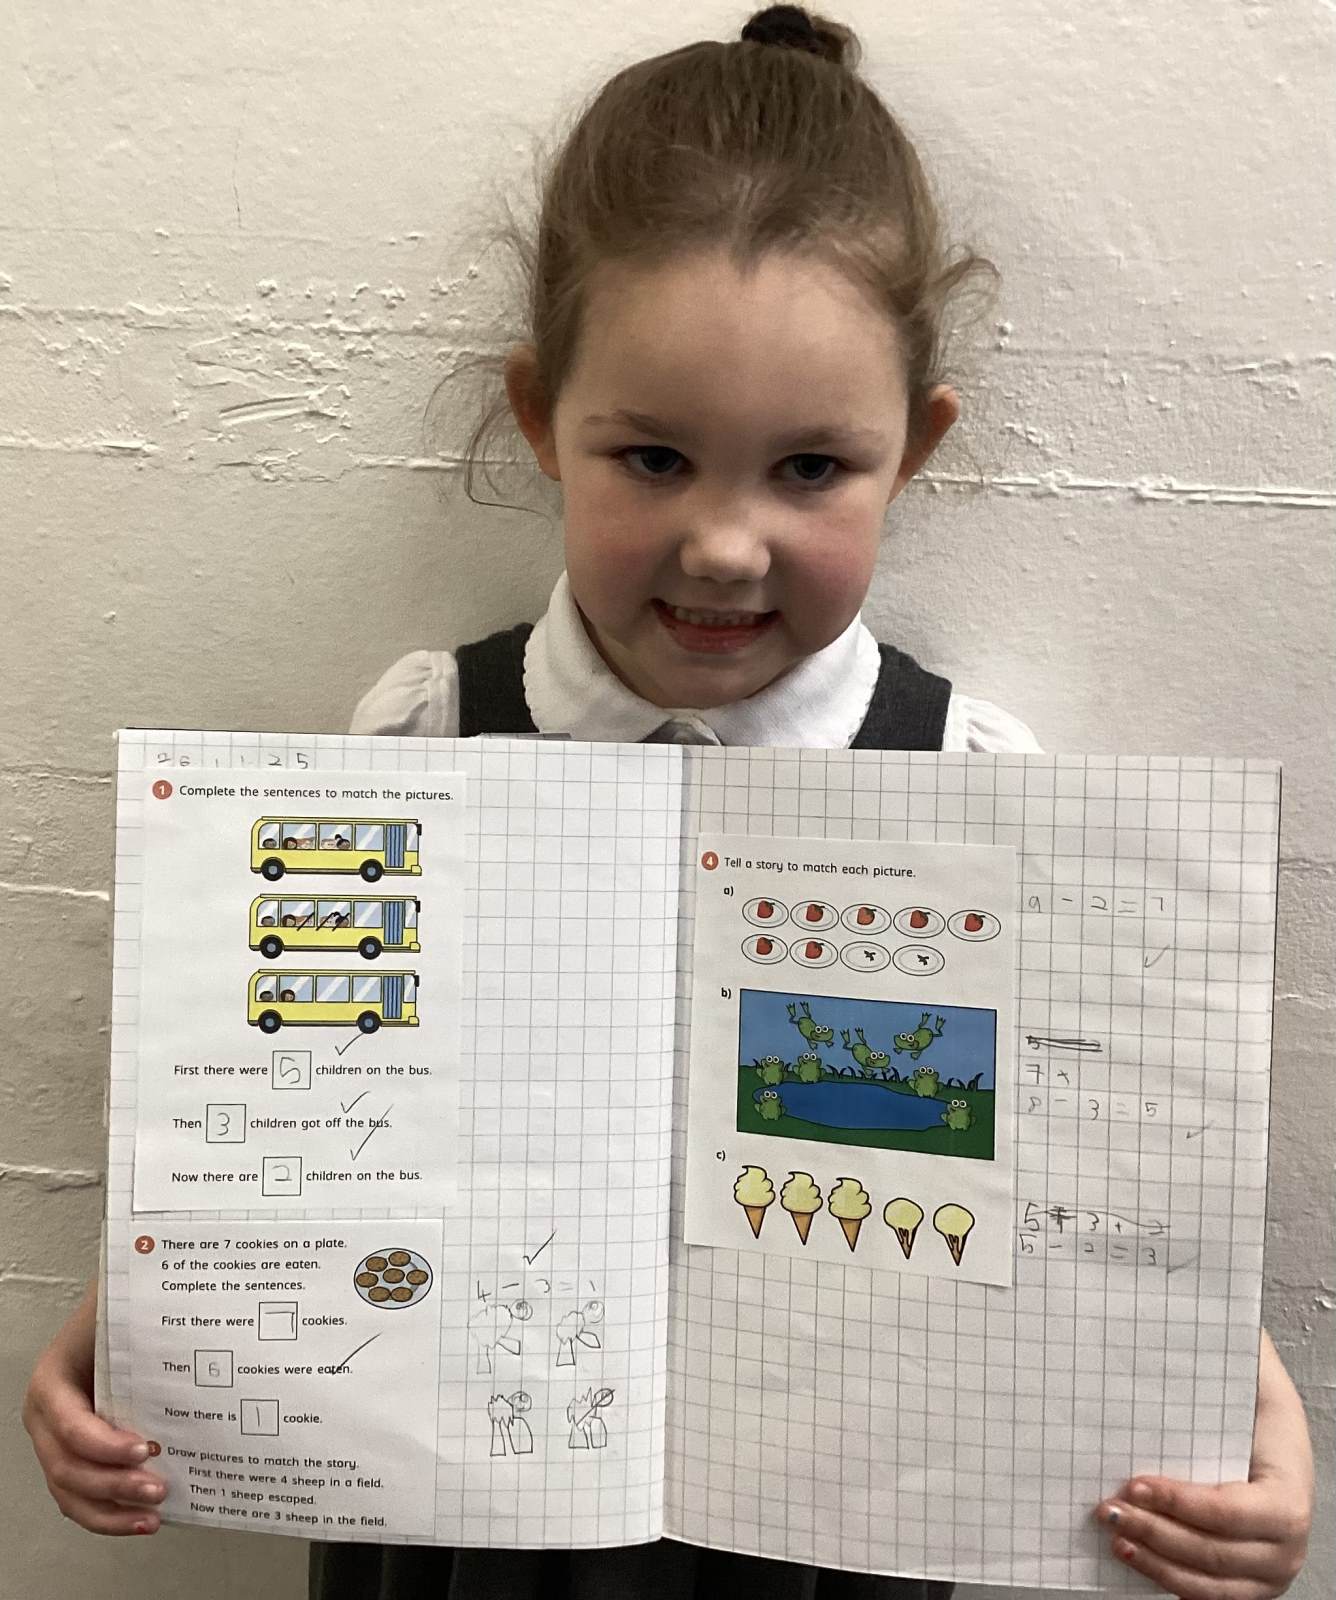 26 11 25
1 Complete the sentences to match the pictures.
First there were 5 children on the bus.
Then 3 children got off the bus.
Now there are 2 children on the bus.
2 There are 7 cookies on a plate.
6 of the cookies are eaten.
Complete the sentences.
First there were 7 cookies.
Then 6 cookies were eaten.
Now there is 1 cookie.
Draw pictures to match the story.
First there were 4 sheep in a field.
Then 1 sheep escaped.
Now there are 3 sheep in the field.
4 - 3 = 1
4 Tell a story to match each picture.
a)
9 - 2 = 7
b)
7 +
8 - 3 = 5
c)
5 - 2 = 3